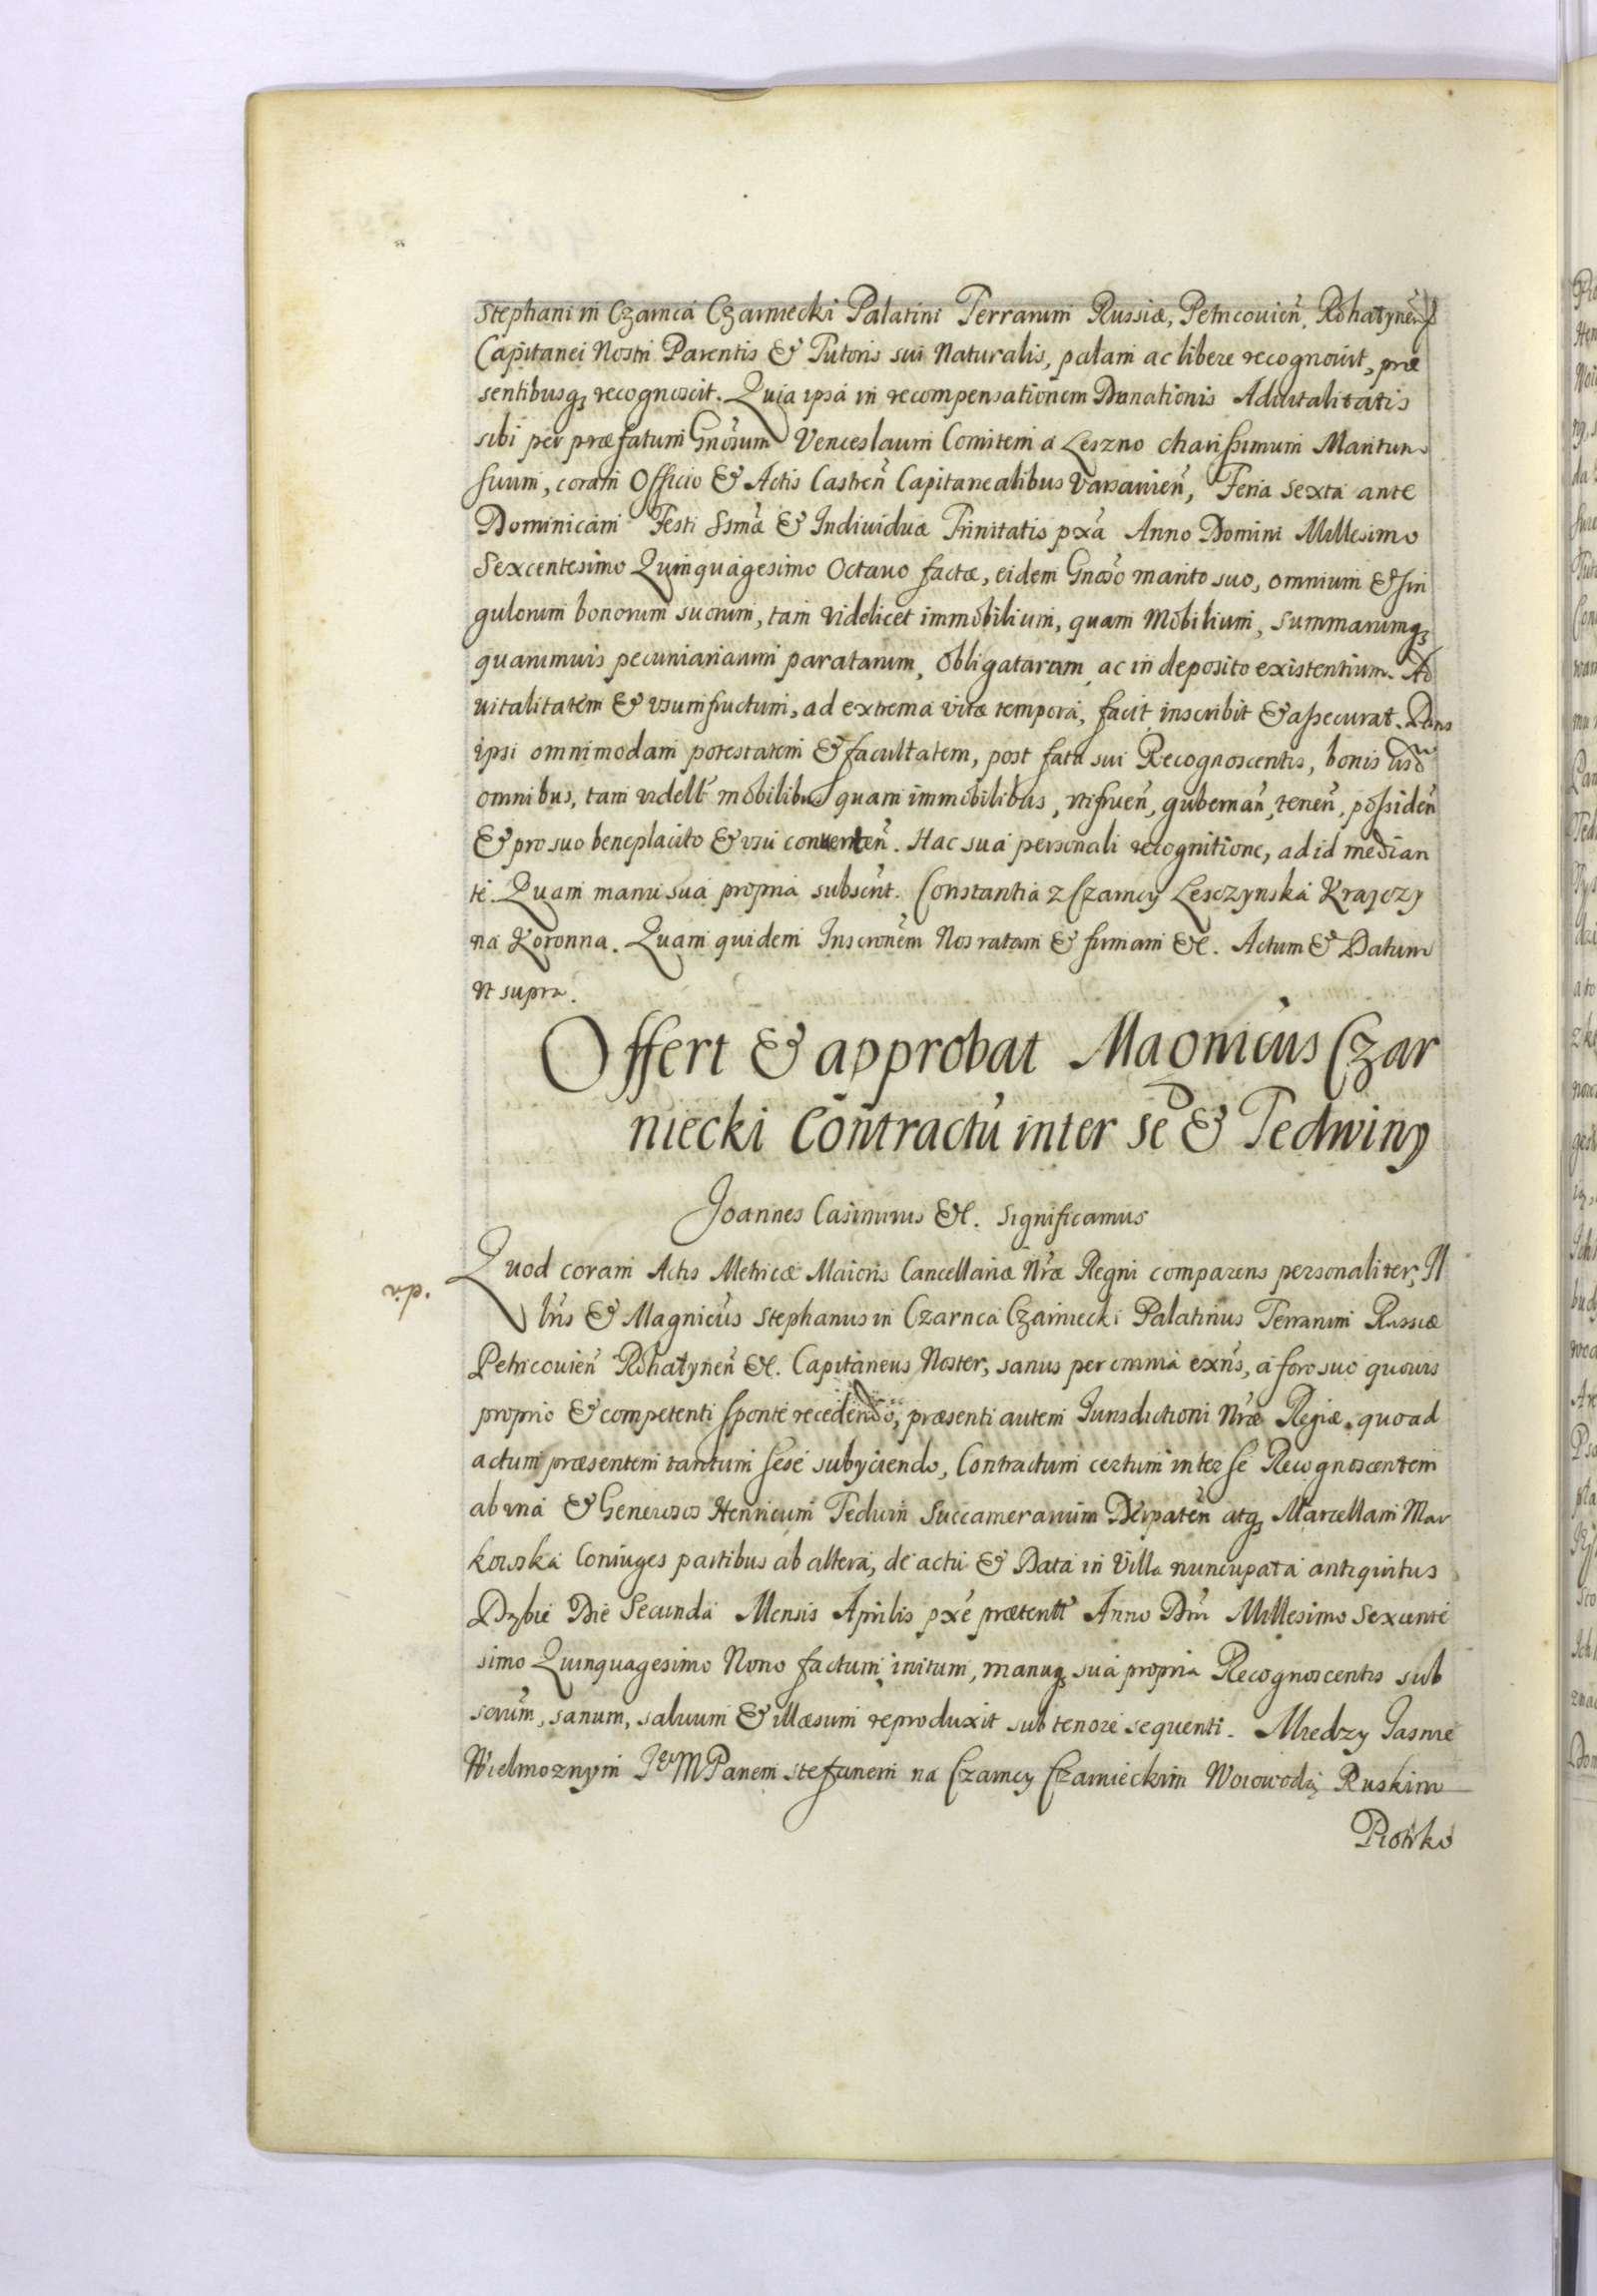 Stephani in Czarnca Czarniecki Palatini Terrarum Russiæ, Petricouien̄, Rohatynen̄
Capitanei Nostri Parentis & Tutoris sui Naturalis, palam ac libere recognouit, præ
sentibusq₃ recognoscit. Quia ipsa in recompensationem Donationis Aduitalitatis
sibi per præfatum Gnosum Venceslaum Comitem a Leszno charissimum Maritum
suum, coram Officio & Actis Castren̄ Capitanealibus Varsauien̄, Feria Sexta ante
Dominicam Festi Ssmæ & Indiuiduæ Trinitatis pxa Anno Domini Millesimo
Sexcentesimo Quinquagesimo Octauo factæ, eidem Gnoso marito suo, omnium & sin
gulorum bonorum suorum, tam videlicet immobilium, quam Mobilium, summarumq₃
quarumuis pecuniariarum paratarum, obligatarum ac in deposito existentium. Ad
uitalitatem & usumfructum, ad extrema vitæ tempora, facit inscribit & assecurat. Dans
ipsi omnimodam potestatem & facultatem, post fata sui Recognoscentis, bonis iisd
omnibus, tam videllt mobilibus quam immobilibus, vtifruen̄, gubernan̄, tenen̄, possiden̄
& pro suo beneplacito & vsui conuerten̄. Hac sua personali recognitione, ad id median
te. Quam manu sua propria subscrit. Constantia z Czarncy Lesczynska Krajczy
na Koronna. Quam quidem Inscronem Nos ratam & firmam &c. Actum & Datum
vt supra.
Offert & approbat Magnicus Czar
niecki Contractū inter se & Tedwiny
Joannes Casimirus &c. Significamus
Quod coram Actis Metricæ Maioris Cancellariæ Nræ Regni comparens personaliter, Il
lris & Magnicus Stephanus in Czarnca Czarniecki Palatinus Terrarum Russiæ
Petricouien̄ Rohatynen̄ &c. Capitaneus Noster, sanus per omnia exns, a foro suo quouis
proprio & competenti sponte recedendo, præsenti autem Iurisdictioni Nræ Regiæ quoad
actum præsentem tantum sese subyciendo, Contractum certum inter se Recognoscentem
ab vna & Generosos Henricum Teduin Succamerarium Derpaten̄ atq₃ Marcellam Mar
kowska Coniuges partibus ab altera, de actu & Data in Villa nuncupata antiquitus
Dzbie Die Secunda Mensis Aprilis pxe prætentt Anno Dni Millesimo Sexcente
simo Quinquagesimo Nono factum initum, manuq₃ sua propria Recognoscentis sub
scrium, sanum, saluum & illæsum reproduxit sub tenore sequenti. Miedzy Jasnie
Wielmoznym JeM Panem Stefanem na Czarncy Czarnieckim Woiowodą Ruskim
Piotrko